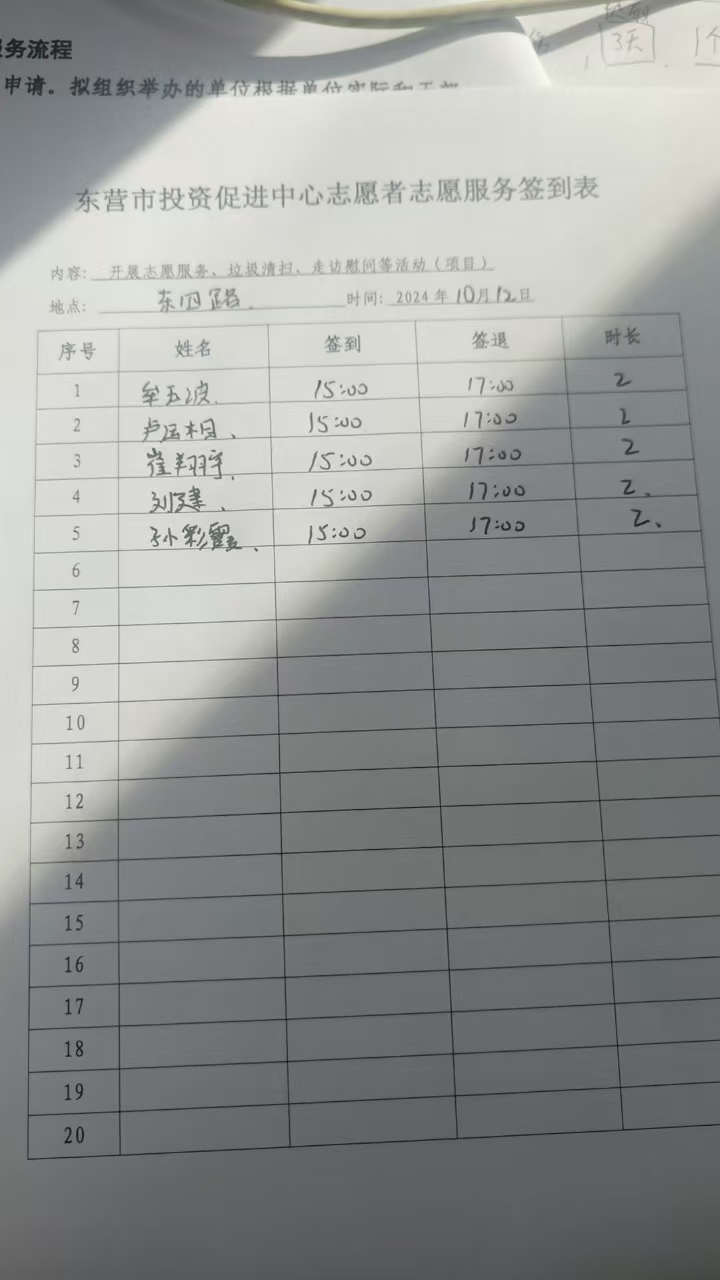 服务流程
申请。拟组织举办的单位根据单位实际和干部
3天
1个
东营市投资促进中心志愿者志愿服务签到表
内容: 开展志愿服务、垃圾清扫、走访慰问等活动（项目）
地点: 东四路. 时间: 2024年10月12日
序号 姓名 签到 签退 时长
1 牟玉波. 15:00 17:00 2
2 15:00 17:00 2
3 崔翔宇. 15:00 17:00 2
4 刘建. 15:00 17:00 2.
5 孙彩霞. 15:00 17:00 2.
6
7
8
9
10
11
12
13
14
15
16
17
18
19
20